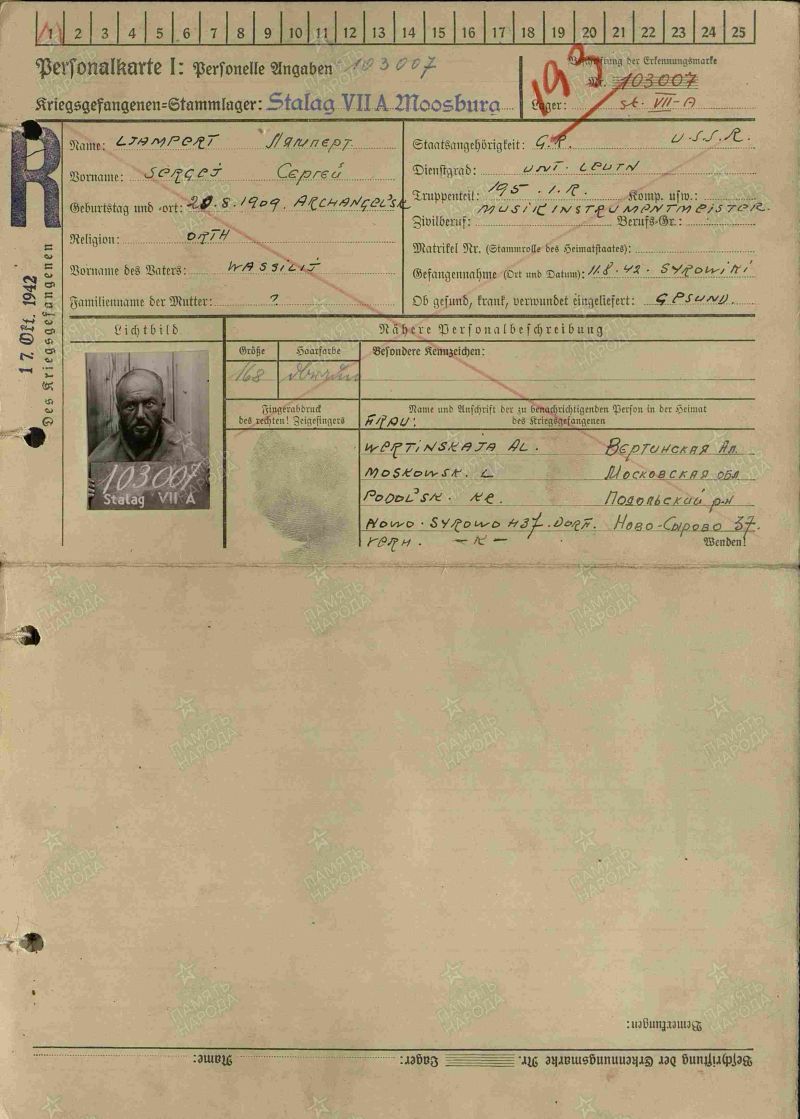 1 2 3 4 5 6 7 8 9 10 11 12 13 14 15 16 17 18 19 20 21 22 23 24 25
Personalkarte I: Personelle Angaben 103007
Kriegsgefangenen-Stammlager: Stalag VII A Moosburg
Beschriftung der Erkennungsmarke
Nr. 103007
Lager: St. VII-A
193
R
17. Okt. 1942
Des Kriegsgefangenen
Name: LJAMPERT Лямперт
Vorname: SERGEJ Сергей
Geburtstag und -ort: 20.8.1909. ARCHANGELSK
Religion: ORTH
Vorname des Vaters: WASSILIJ
Familienname der Mutter: ?
Staatsangehörigkeit: G.R. U.S.S.R.
Dienstgrad: UNT. LEUTN
Truppenteil: 195. I.R. Komp. usw.:
Zivilberuf: MUSIKINSTRUMENTMEISTER. Berufs-Gr.:
Matrikel Nr. (Stammrolle des Heimatstaates):
Gefangennahme (Ort und Datum): 11.8.42. SYROWIKI
Ob gesund, krank, verwundet eingeliefert: GESUND.
Lichtbild
Nähere Personalbeschreibung
Größe Haarfarbe Besondere Kennzeichen:
168
Fingerabdruck
des rechten! Zeigefingers
Name und Anschrift der zu benachrichtigenden Person in der Heimat
des Kriegsgefangenen
FRAU:
WERTINSKAJA AL. Вертинская Ал.
MOSKOWSK. Московская обл
PODOLSK. Подольский р-н
NOWO-SYROWO H37. DORF. Ново-Сырово 37.
Wenden!
103007
Stalag VII A
Bemerkungen:
Beschriftung der Erkennungsmarke Nr. Lager: Name:
ПАМЯТЬ НАРОДА